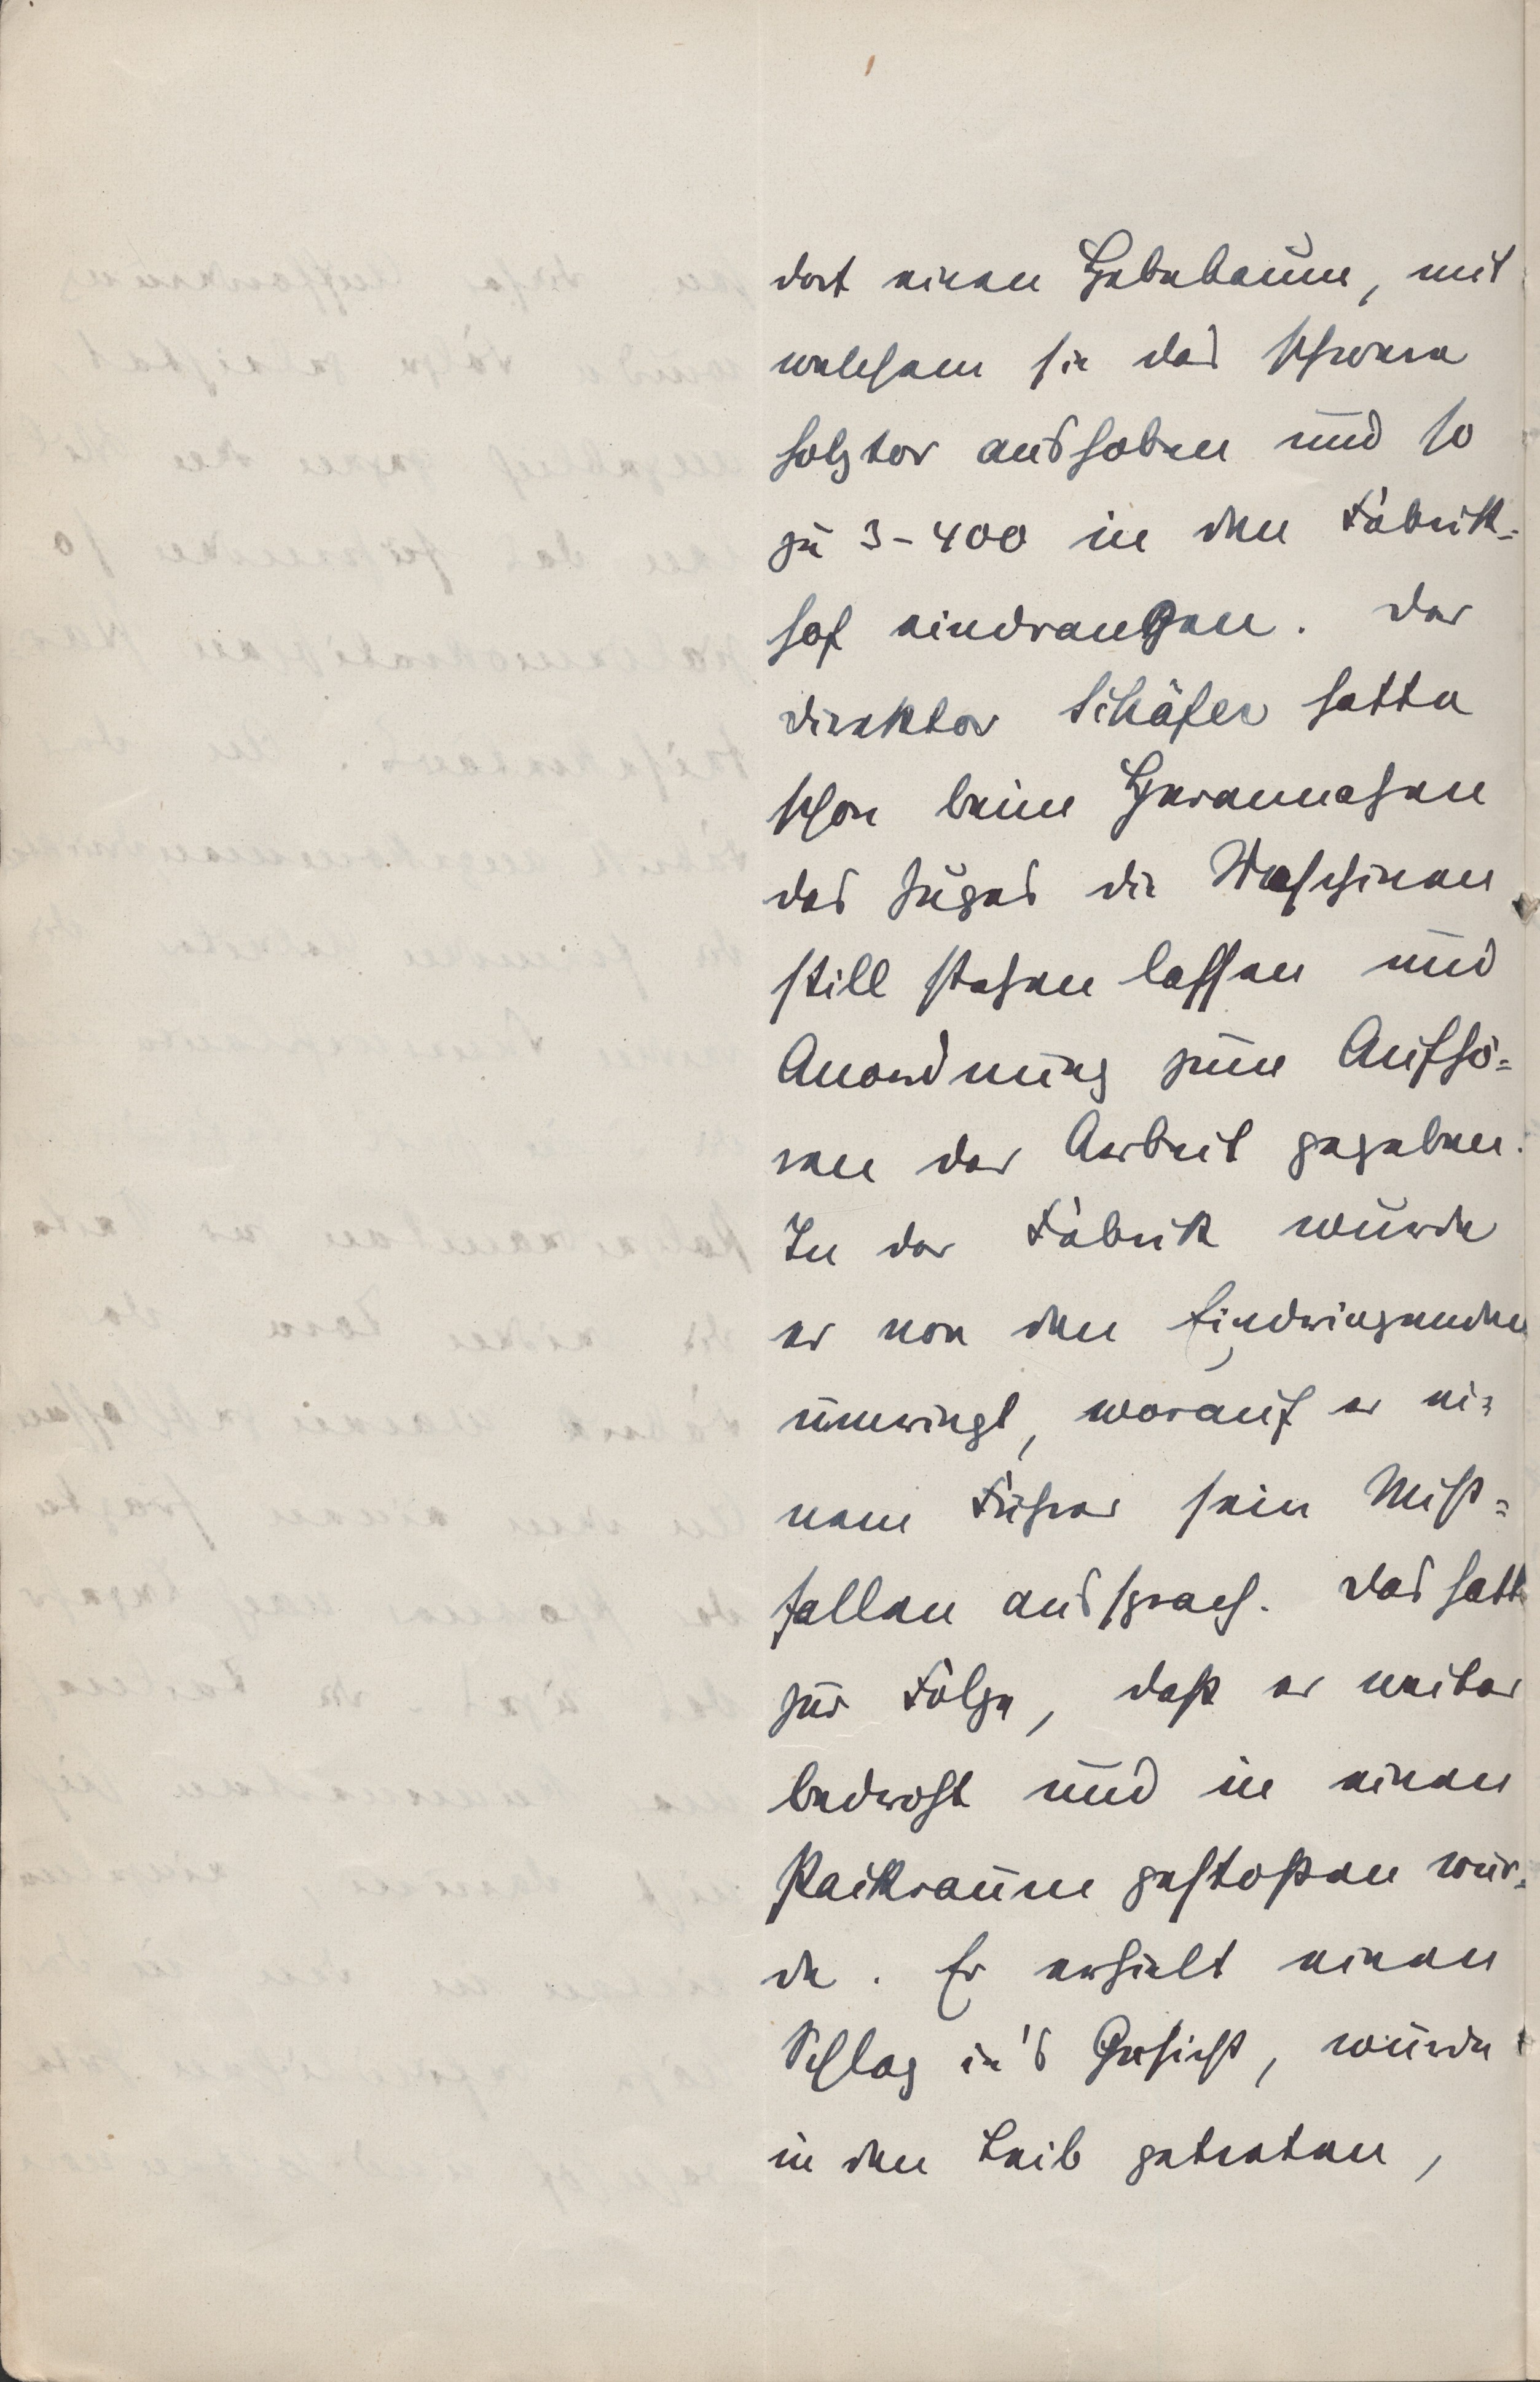 dort einen Hebebaum, mit
welchem sie das schwere
Holztor aushoben und so
zu 3-400 in den Fabrik-
hof eindrangen. Der
Direktor Schäfer hatte
schon beim Herannahen
des Zuges die Maschinen
still stehen lassen und
Anordnung zum Aufhö-
ren der Arbeit gegeben.
In der Fabrik wurde
er von den Eindringenden
umringt, worauf er ei-
nem Führer sein Miß-
fallen aussprach. Das hatte
zur Folge, daß er weiter
bedroht und in einen
Packraum gestoßen wur-
de. Er erhielt einen
Schlag in's Gesicht, wurde
in den Leib getreten,